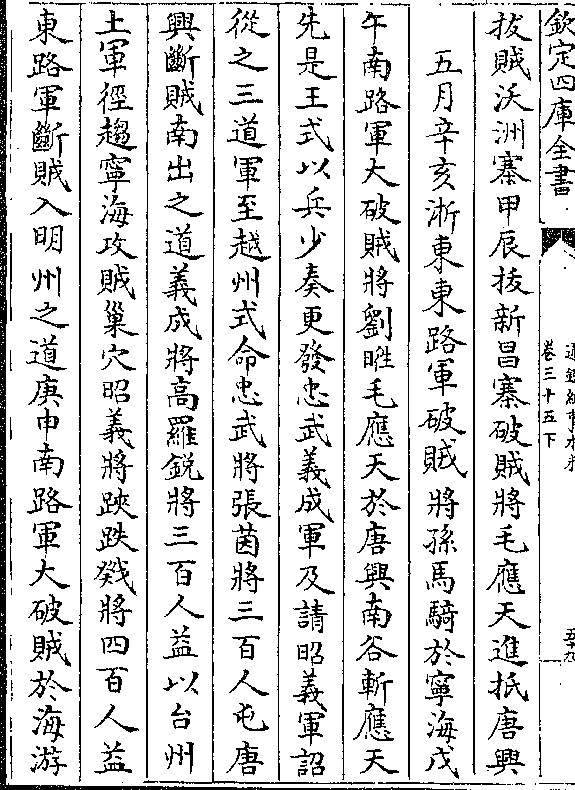 欽定四庫全書
通鑑紀事本末
卷三十五下
五十九
拔賊沃洲寨甲辰拔新昌寨破賊將毛應天進抵唐興
五月辛亥浙東東路軍破賊將孫馬騎於寧海戊
午南路軍大破賊將劉暀毛應天於唐興南谷斬應天
先是王式以兵少奏更發忠武義成軍及請昭義軍詔
從之三道軍至越州式命忠武將張茵將三百人屯唐
興斷賊南出之道義成將高羅鋭將三百人益以台州
土軍徑趨寧海攻賊巢穴昭義將䟦跌戣將四百人益
東路軍斷賊入明州之道庚申南路軍大破賊於海游